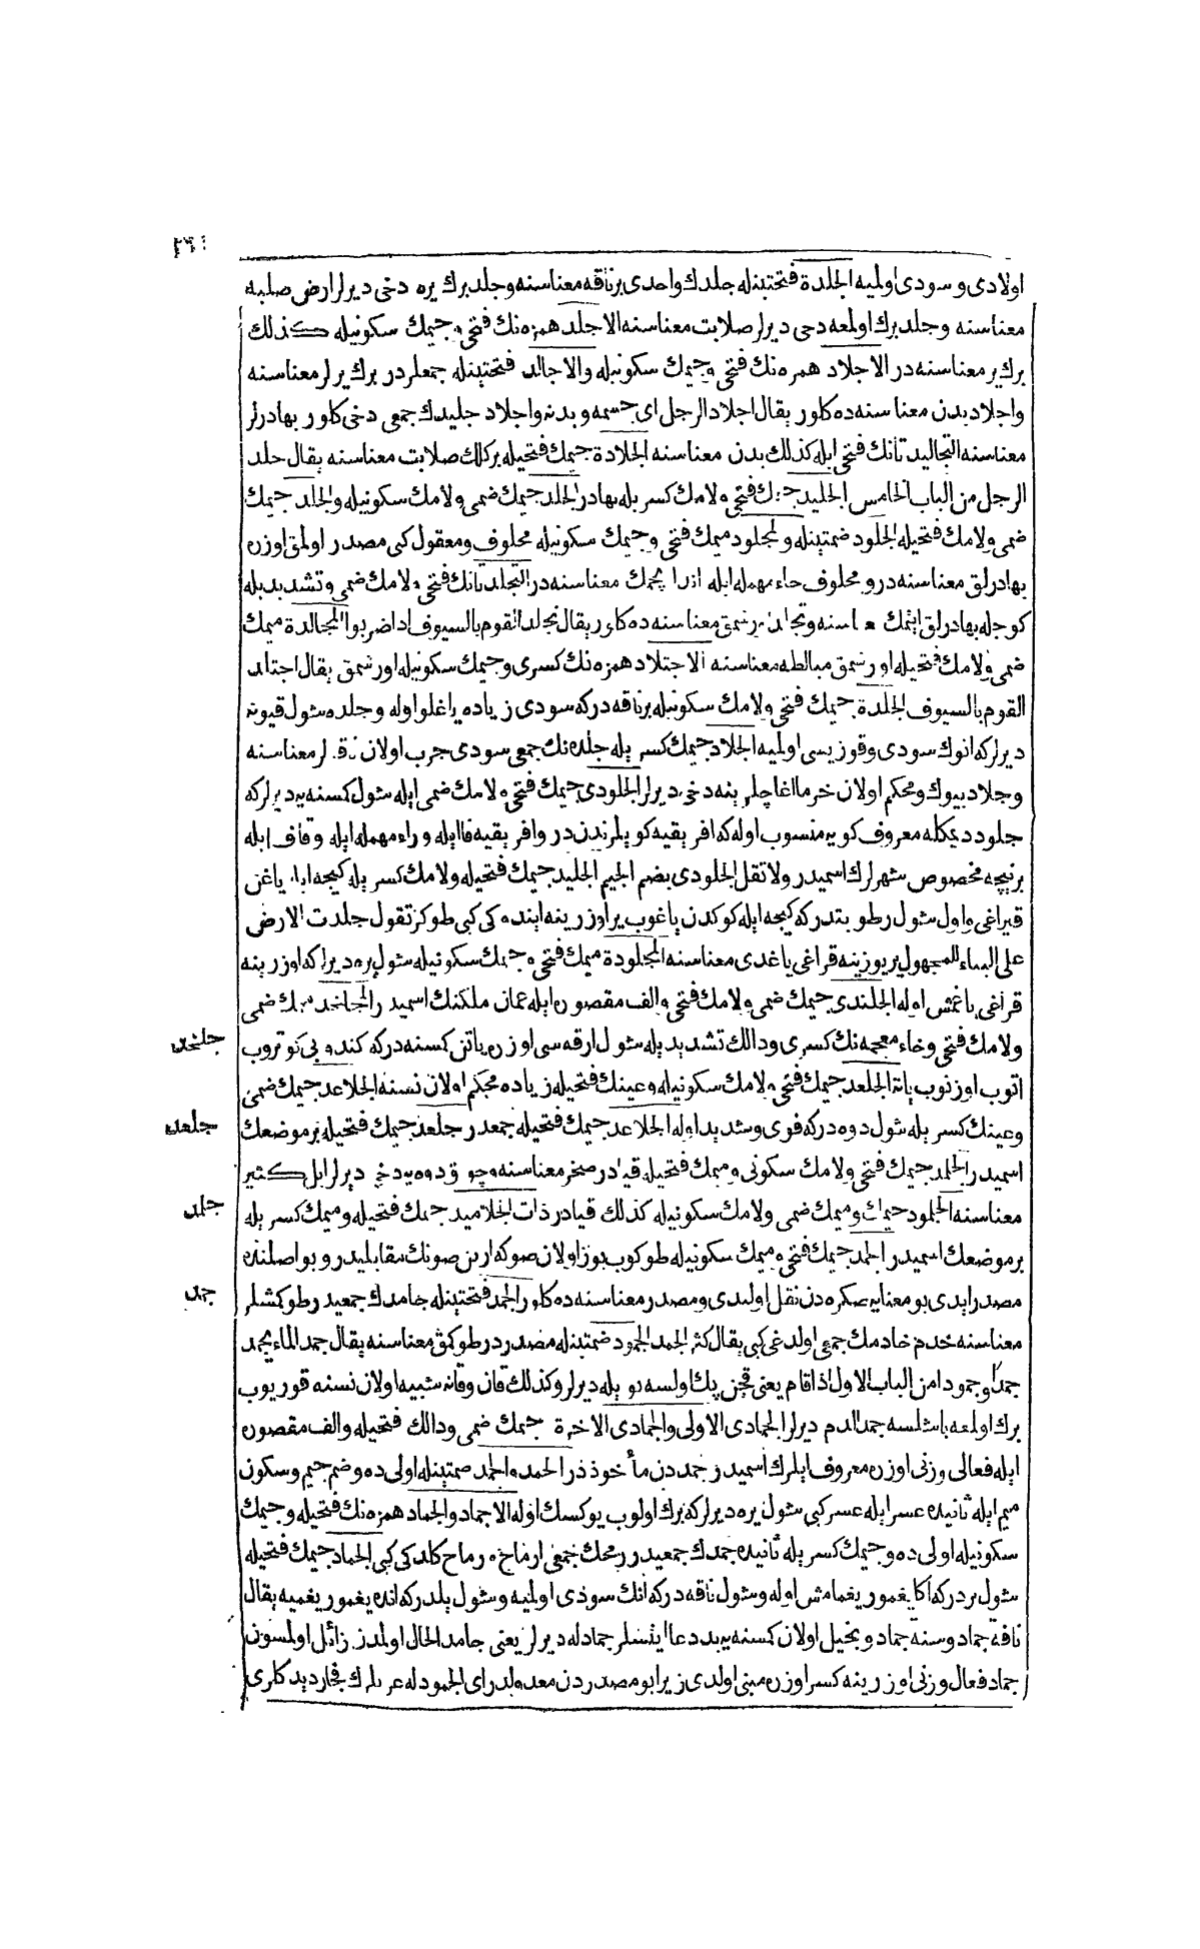 ٢٩١
اولادى و سودى اولميه الجلدة فتحتينله جلدك واحدى بر ناقه معناسنه و جلد برك يره دخى ديرلر ارض صلبه
معناسنه و جلد برك اولمعه دخى ديرلر صلابت معناسنه الاجلد همزه نك فتحى و جيمك سكونيله كذلك
برك ير معناسنه در الاجلاد همزه نك فتحى و جيمك سكونيله والاجالد فتحتينله جمعلردر برك يرلر معناسنه
واجلاد بدن معناسنه ده كلور يقال اجلاد الرجل اى جسمه و بدنه واجلاد جليدك جمعى دخى كلور بهادرلر
معناسنه التجاليد تانك فتحى ايله كذلك بدن معناسنه الجلادة جيمك فتحيله بركلك صلابت معناسنه يقال جلد
الرجل من الباب الخامس الجليد جيمك فتحى ولامك كسريله بهادر الجلد جيمك ضمى ولامك سكونيله والجلد جيمك
ضمى ولامك فتحيله الجلود ضمتينله والمجلود ميمك فتحى و جيمك سكونيله محلوف ومعقول كبى مصدر اولمق اوزره
بهادرلق معناسنه در و محلوف حاء مهمله ايله اندا يچمك معناسنه در التجلد تانك فتحى ولامك ضمى و تشديديله
كوجله بهادرلق ايتمك معناسنه و تجالد اورشمق معناسنه ده كلور يقال تجالد القوم بالسيوف اذا ضربوا المجالدة ميمك
ضمى ولامك فتحيله اورشمق مبالطه معناسنه الاجتلاد همزه نك كسرى و جيمك سكونيله اورشمق يقال اجتلد
القوم بالسيوف الجلدة جيمك فتحى ولامك سكونيله بر ناقه در كه سودى زياده ياغلو اوله و جلده شول قيونه
ديرلر كه انوك سودى و قوزيسى اولميه الجلاد جيمك كسريله جلده نك جمعى سودى جرب اولان ناقه لر معناسنه
و جلاد بيوك و محكم اولان خرما اغاچلرينه دخى ديرلر الجلودى جيمك فتحى ولامك ضمى ايله شول كسنه يه ديرلر كه
جلود ديمكله معروف كويه منسوب اوله كه افريقيه كويلرندن در و افريقيه فا ايله و راء مهمله ايله و قاف ايله
برنيچه مخصوص شهرلرك اسميدر ولا تقل الجلودى بضم الجيم الجليد جيمك فتحيله ولامك كسريله كيجه ايله ياغن
قيراغى و اول شول رطوبتدر كه كيجه ايله كوكدن ياغوب ير اوزرينه اينده كى كبى طوكر تقول جلدت الارض
على البناء للمجهول ير يوزينه قراغى ياغدى معناسنه المجلودة ميمك فتحى و جيمك سكونيله شول يره ديرلر كه اوزرينه
قراغى ياغمش اوله الجلندى جيمك ضمى ولامك فتحى والف مقصوره ايله عمان ملكنك اسميدر المجلخد ميمك ضمى
ولامك فتحى و خاء معجمه نك كسرى و دالك تشديديله شول ارقه سى اوزره ياتن كسنه در كه كندويى كوتروب
اتوب اوزنوب ياته الجلعد جيمك فتحى ولامك سكونيله و عينك فتحيله زياده محكم اولان نسنه الجلاعد جيمك ضمى
و عينك كسريله شول دوه در كه قوى و شديد اوله الجلاعد جيمك فتحيله جمعدر جلعد جيمك فتحيله بر موضعك
اسميدر الجلمد جيمك فتحى ولامك سكونى و ميمك فتحيله قيادر صخر معناسنه و چوق دوه يه دخى ديرلر ابل كثير
معناسنه الجلمود جيمك و ميمك ضمى ولامك سكونيله كذلك قيادر ذات الجلاميد جيمك فتحيله و ميمك كسريله
بر موضعك اسميدر الجمد جيمك فتحى و ميمك سكونيله طوكوب بوز اولان صو كه ارين صونك مقابليدر و بو اصلنده
مصدر ايدى بو معنايه صكره دن نقل اولندى و مصدر معناسنه ده كلور الجمد فتحتينله جامدك جمعيدر طوكمشلر
معناسنه خدم خادمك جمعى اولدغى كبى يقال كثر الجمد الجمود ضمتينله مصدردر طوكمق معناسنه يقال جمد الماء يجمد
جمدا و جمودا من الباب الاول اذا قام يعنى قچن پك اولسه بويله ديرلر و كذلك قان و قانه شبيه اولان نسنه قوريوب
برك اولمعه باشلسه جمد الدم ديرلر الجمادى الاولى والجمادى الاخرة جيمك ضمى و دالك فتحيله والف مقصوره
ايله فعالى وزنى اوزره معروف ايلرك اسميدر جمد دن مأخوذدر الجمد والجمد ضمتينله اولى ده و ضم جيم و سكون
ميم ايله ثانيده عسر ايله عسر كبى شول يره ديرلر كه برك اولوب يوكسك اوله الاجماد والجماد همزه نك فتحيله و جيمك
سكونيله اولى ده و جيمك كسريله ثانيده جمدك جمعيدر رمحك جمعى ارماح و رماح كلدكى كبى الجماد جيمك فتحيله
شول يردر كه اكا يغمور يغمامش اوله و شول ناقه در كه انك سودى اولميه و شول يلدر كه انده يغمور يغميه يقال
ناقة جماد و سنة جماد و بخيل اولان كسنه يه بددعا ايتسلر جماد له ديرلر يعنى جامد الحال اولمدن زائل اولمسون
جماد فعال وزنى اوزرينه كسر اوزره مبنى اولدى زيرا بو مصدردن معدولدر اى الجمود له عربلرك فجار ديدكلرى
جلخد
جلعد
جلمد
جمد